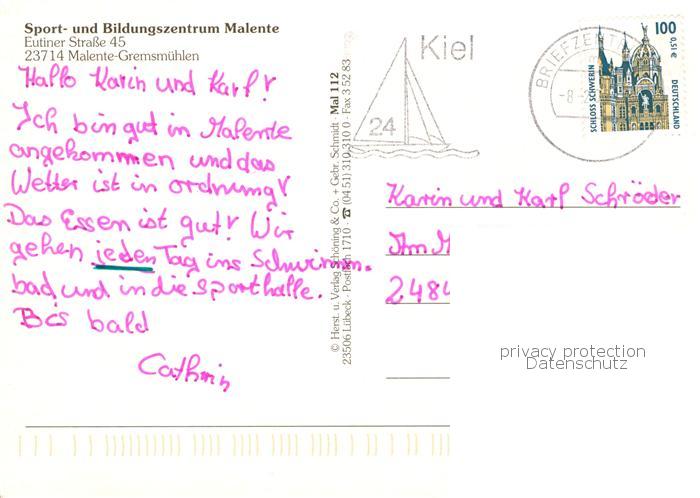 Sport- und Bildungszentrum Malente
Eutiner Straße 45
23714 Malente-Gremsmühlen
Hallo Karin und Karl!
Ich bin gut in Malente
angekommen und das
Wetter ist in ordnung!
Das Essen ist gut! Wir
gehen jeden Tag ins Schwimm-
bad, und in die Sporthalle.
Bis bald
Cathrin
© Herst. u. Verlag Schöning & Co. + Gebr. Schmidt · Mal 112
23506 Lübeck · Postfach 1710 · ☎ (04 51) 310 310 0 · Fax 3 52 83
Kiel
24
BRIEFZENT
-8.
100
0,51 €
SCHLOSS SCHWERIN
DEUTSCHLAND
Karin und Karl Schröder
Am M
2484
privacy protection
Datenschutz